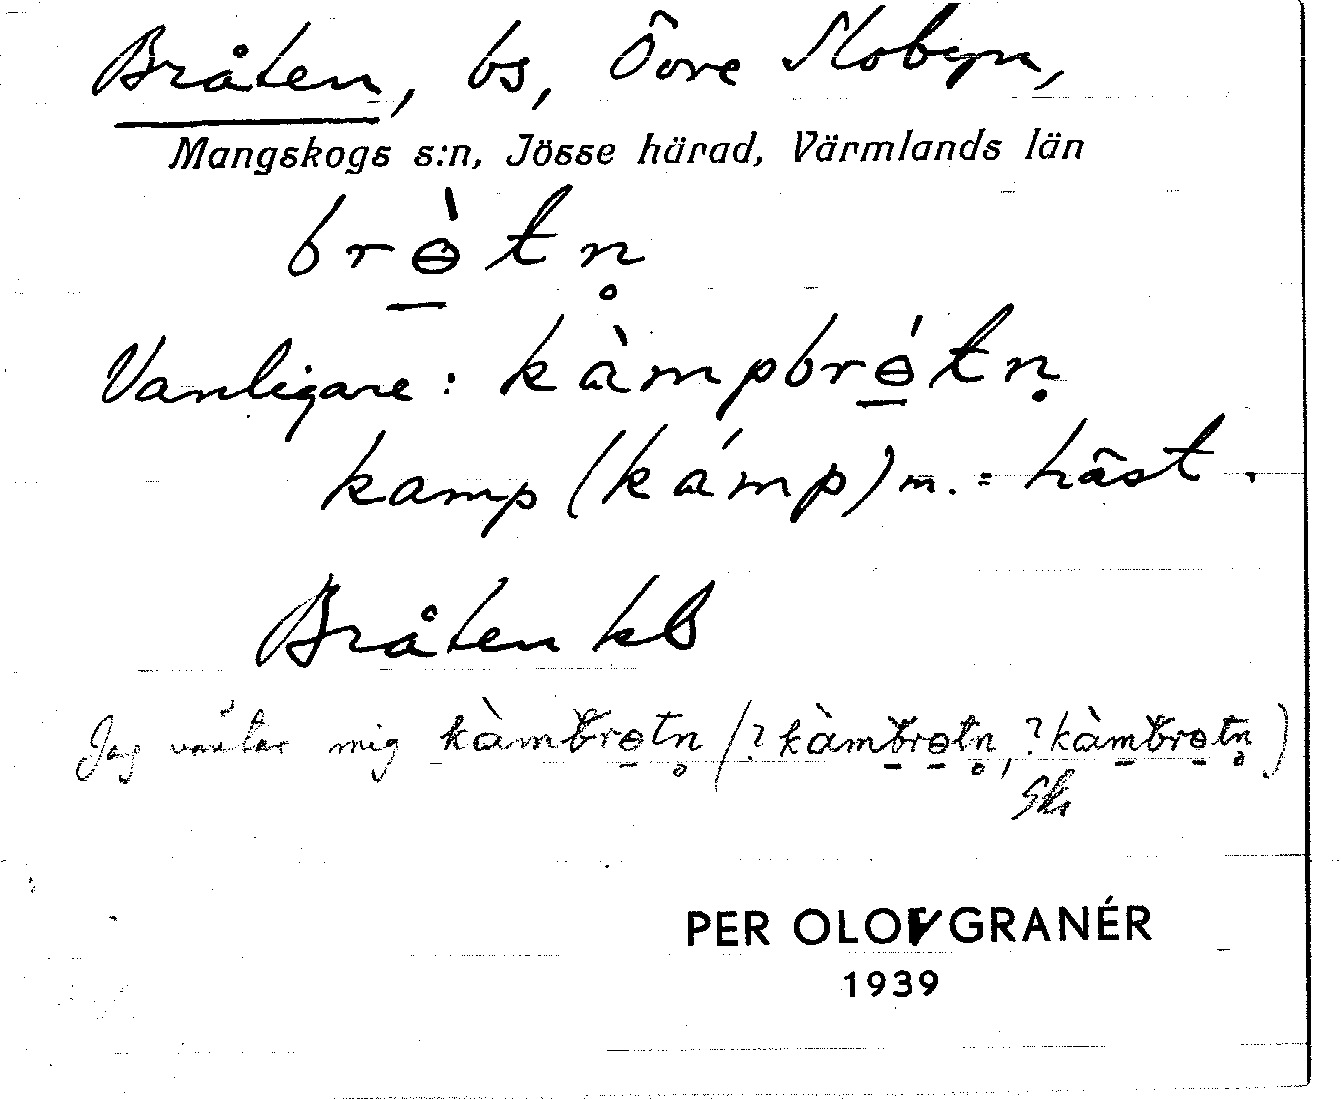 Bråten, bs, Övre Slobyn,
Mangskogs s:n, Jösse härad, Värmlands län
brɵ̀tn̥
Vanligare: kàmpbrɵ́tn̥
kamp (kámp) m. = häst.
Bråten kb
Jag väntar mig kàmbrɵtn̥ (? kàmbrɵtn̥, ? kàmbrɵtn̥)
PER OLOV GRANÉR
1939